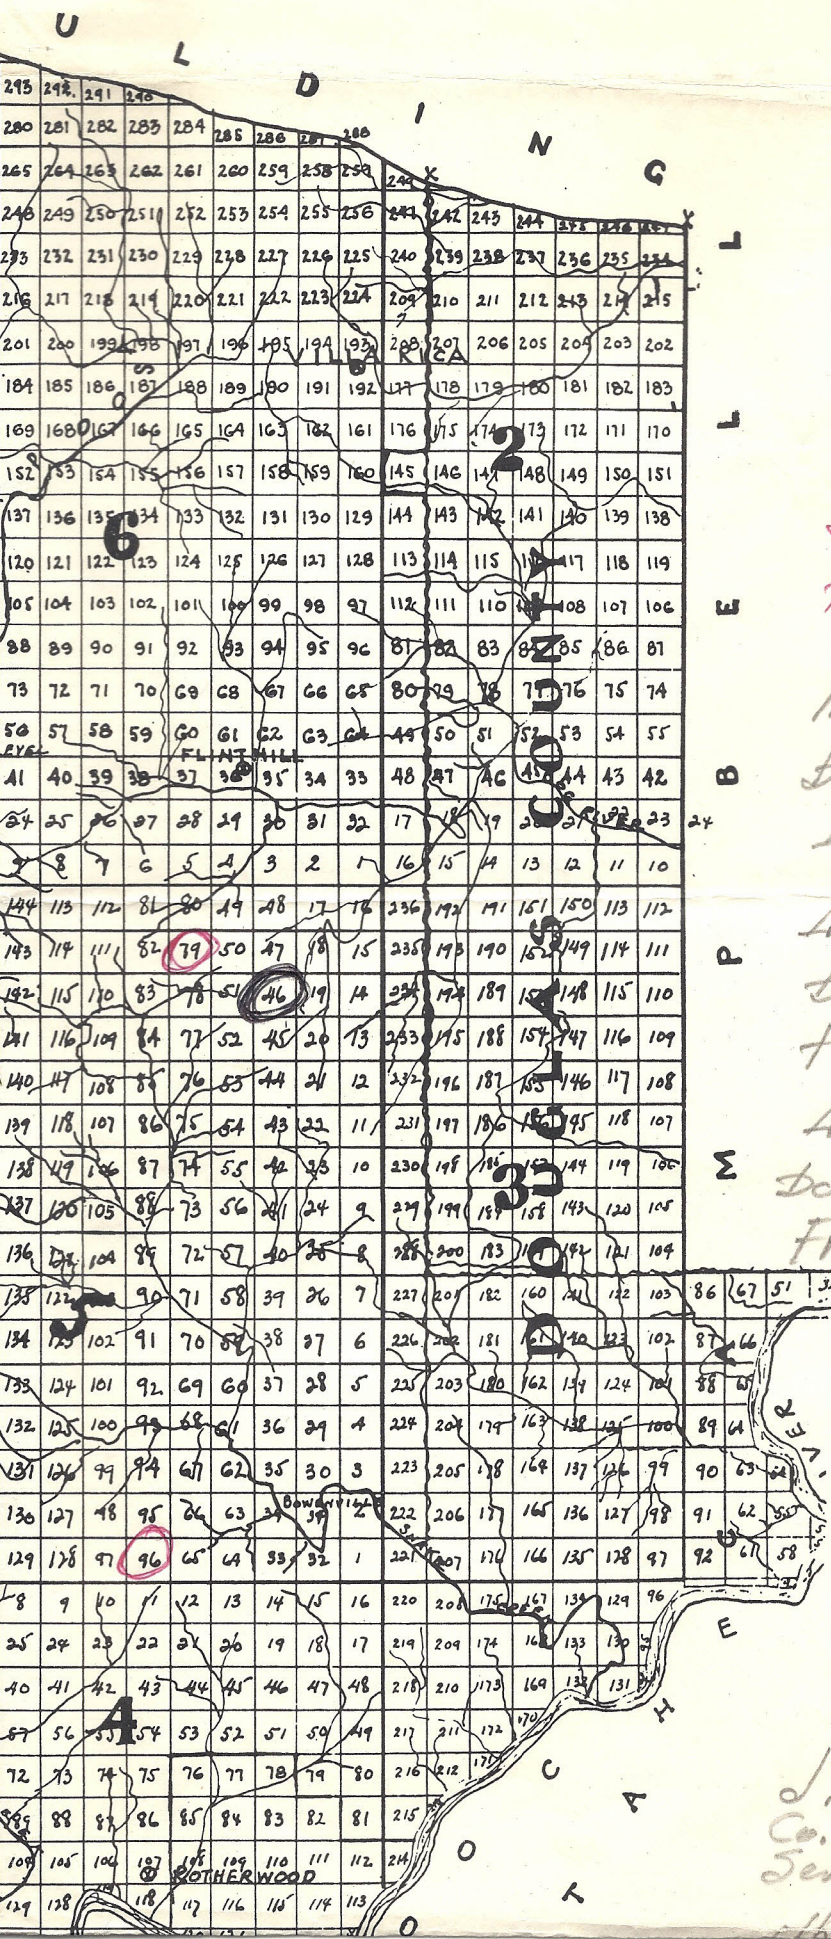 U L D I N G
293 292 291 290
280 281 282 283 284 285 286 287 288
265 264 263 262 261 260 259 258 257 240 X
248 249 250 251 252 253 254 255 256 241 242 243 244 245 246 247 X
233 232 231 230 229 228 227 226 225 240 239 238 237 236 235 234
216 217 218 219 220 221 222 223 224 209 210 211 212 213 214 215
201 200 199 198 197 196 195 194 193 208 207 206 205 204 203 202
VILLA RICA
184 185 186 187 188 189 190 191 192 177 178 179 180 181 182 183
169 168 167 166 165 164 163 162 161 176 175 174 173 172 171 170
2
152 153 154 155 156 157 158 159 160 145 146 147 148 149 150 151
137 136 135 134 133 132 131 130 129 144 143 142 141 140 139 138
6
120 121 122 123 124 125 126 127 128 113 114 115 116 117 118 119
105 104 103 102 101 100 99 98 97 112 111 110 109 108 107 106
88 89 90 91 92 93 94 95 96 81 82 83 84 85 86 87
73 72 71 70 69 68 67 66 65 80 79 78 77 76 75 74
56 57 58 59 60 61 62 63 64 49 50 51 52 53 54 55
FLINT HILL
41 40 39 38 37 36 35 34 33 48 47 46 45 44 43 42
24 25 26 27 28 29 30 31 32 17 18 19 20 21 22 23 24
RIVER
9 8 7 6 5 4 3 2 1 16 15 14 13 12 11 10
144 113 112 81 80 49 48 17 16 236 192 191 151 150 113 112
143 114 111 82 79 50 47 18 15 235 193 190 152 149 114 111
142 115 110 83 78 51 46 19 14 234 194 189 153 148 115 110
141 116 109 84 77 52 45 20 13 233 195 188 154 147 116 109
140 117 108 85 76 53 44 21 12 232 196 187 155 146 117 108
139 118 107 86 75 54 43 22 11 231 197 186 156 145 118 107
138 119 106 87 74 55 42 23 10 230 198 185 157 144 119 106
3
137 120 105 88 73 56 41 24 9 229 199 184 158 143 120 105
136 121 104 89 72 57 40 25 8 228 200 183 159 142 121 104
135 122 103 90 71 58 39 26 7 227 201 182 160 141 122 103 86 67 51
5
134 123 102 91 70 59 38 27 6 226 202 181 161 140 123 102 87 66
133 124 101 92 69 60 37 28 5 225 203 180 162 139 124 101 88 65
132 125 100 93 68 61 36 29 4 224 204 179 163 138 125 100 89 64
131 126 99 94 67 62 35 30 3 223 205 178 164 137 126 99 90 63
BOWENVILLE
130 127 98 95 66 63 34 31 2 222 206 177 165 136 127 98 91 62
129 128 97 96 65 64 33 32 1 221 207 176 166 135 128 97 92 61 58
SNAKE CREEK
8 9 10 11 12 13 14 15 16 220 208 175 167 134 129 96
25 24 23 22 21 20 19 18 17 219 209 174 168 133 130 95
40 41 42 43 44 45 46 47 48 218 210 173 169 132 131
4
57 56 55 54 53 52 51 50 49 217 211 172 170
72 73 74 75 76 77 78 79 80 216 212 171
89 88 87 86 85 84 83 82 81 215
104 105 106 107 108 109 110 111 112 214
ROTHERWOOD
129 128 118 117 116 115 114 113
DOUGLAS COUNTY
CAMPBELL
VER